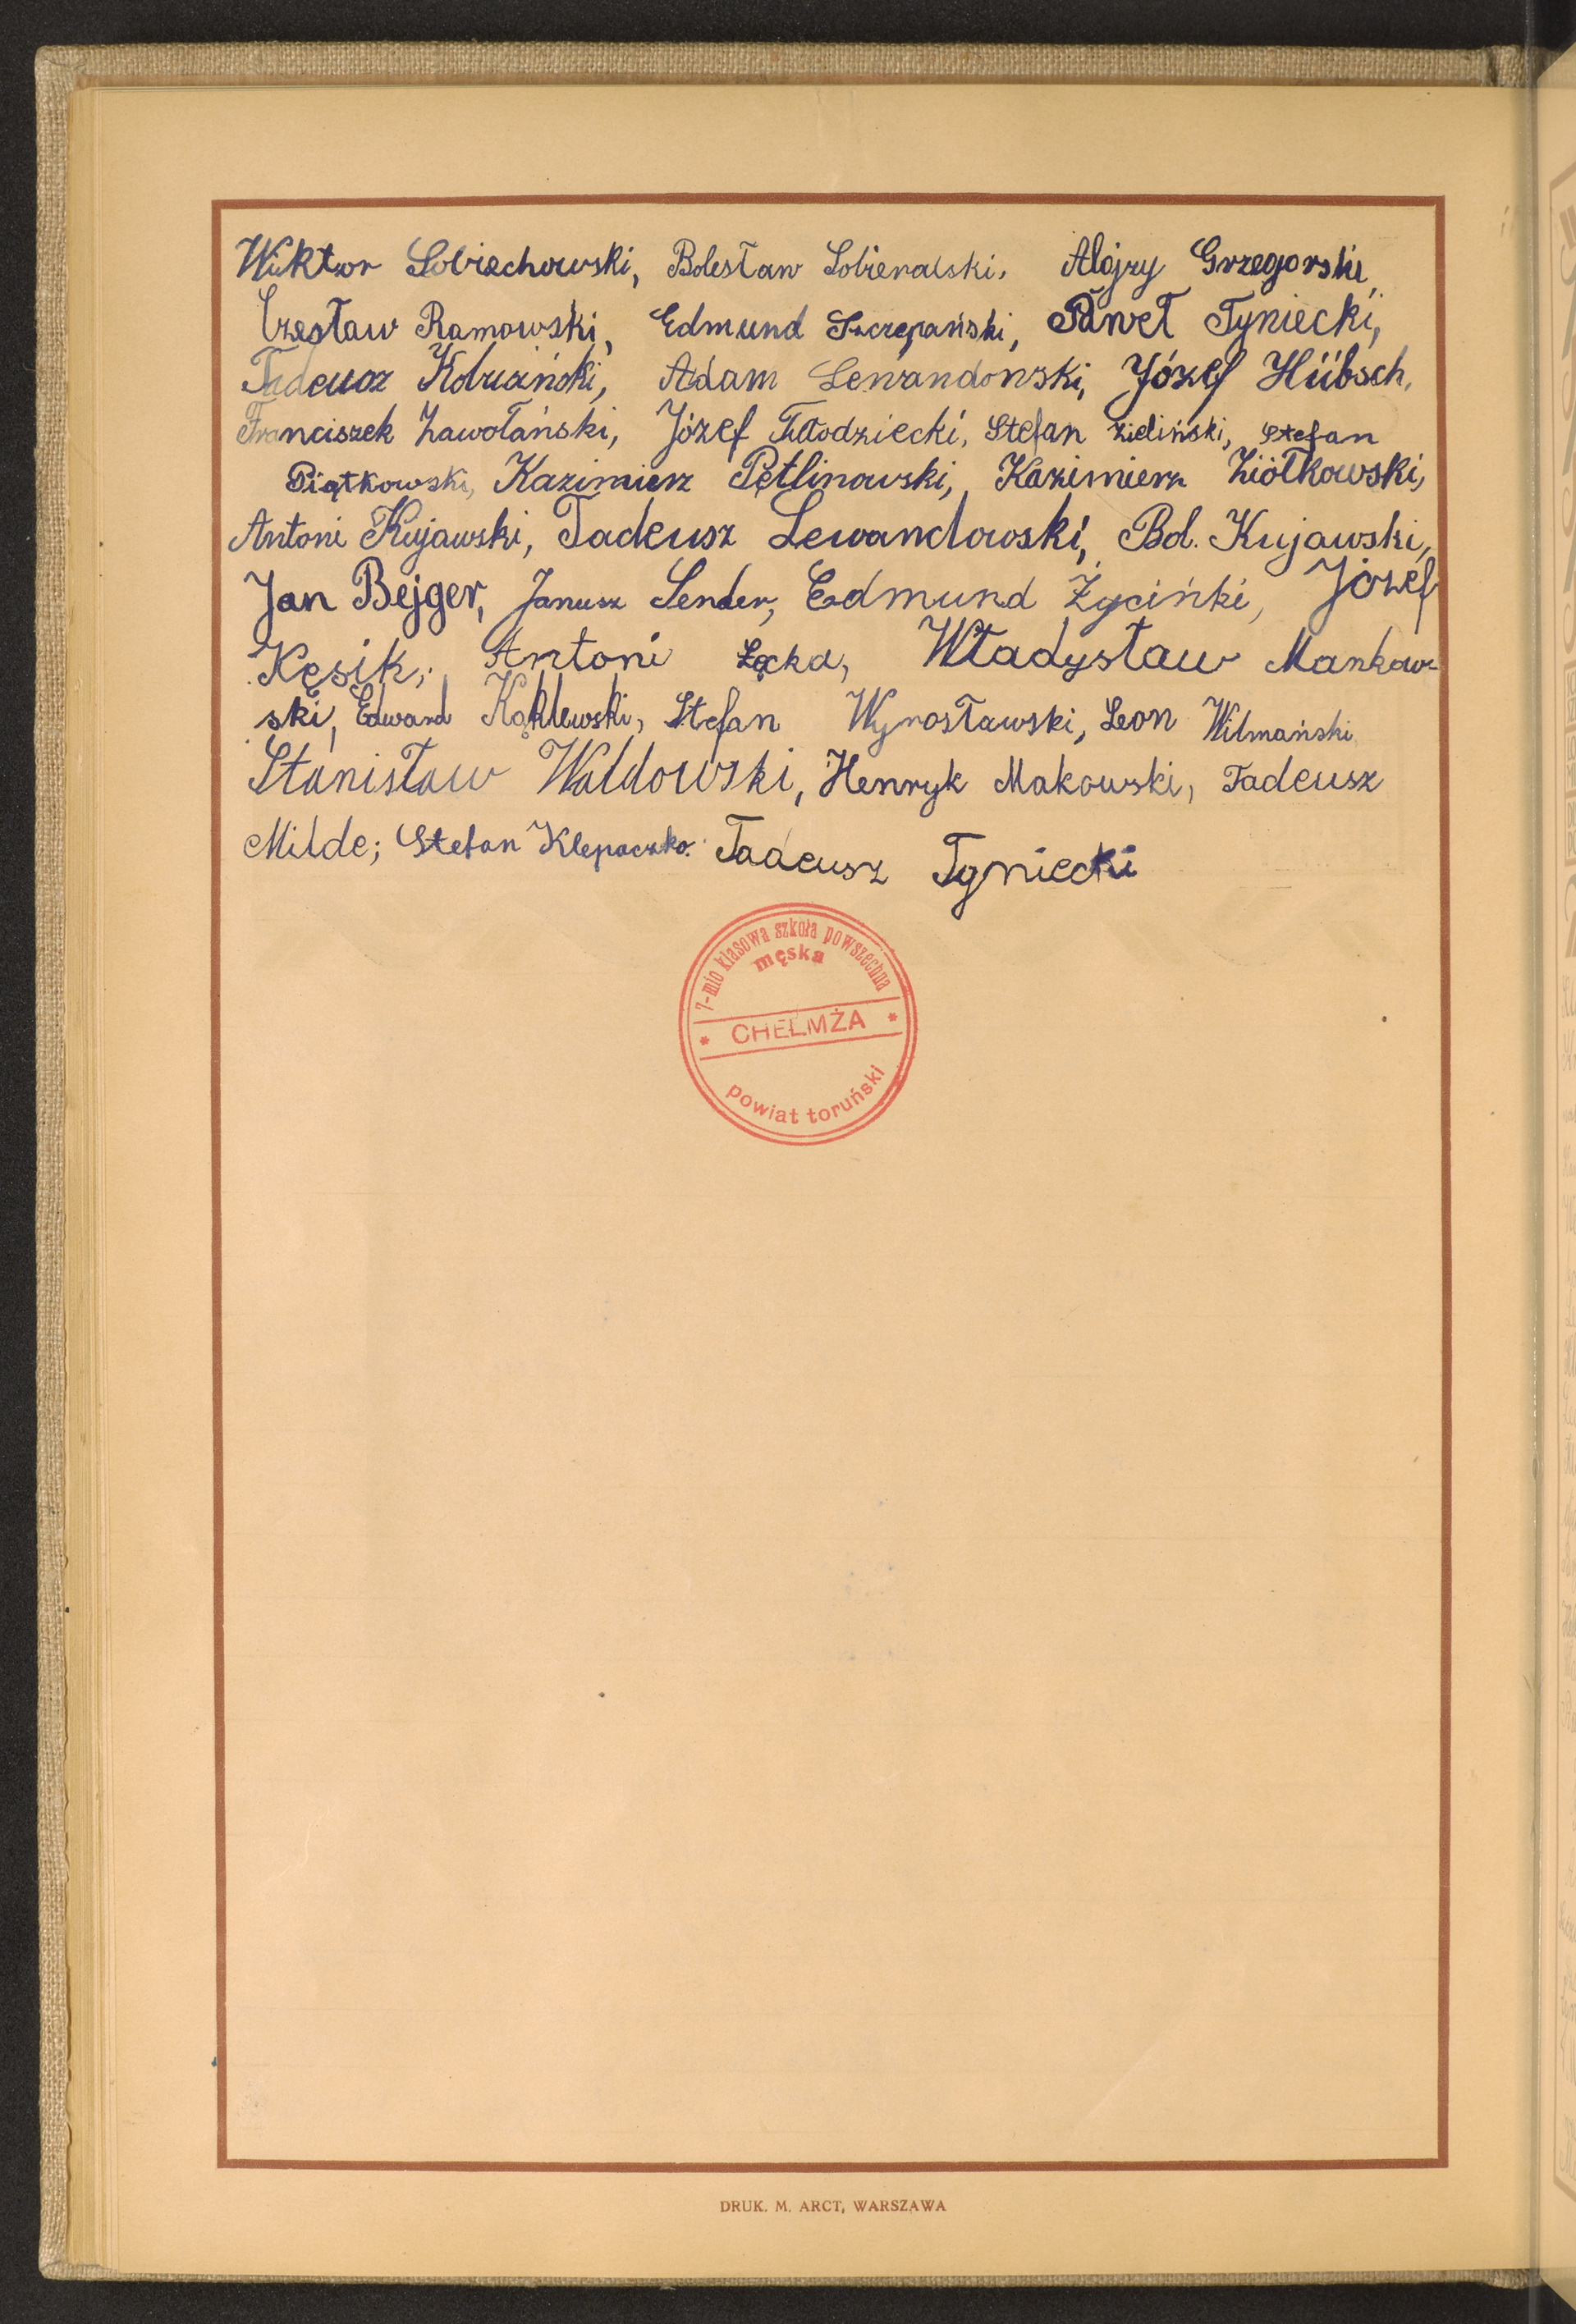 Wiktor Sobiechowski, Bolesław Sobieralski, Alojzy Grzegorski,
Czesław Ramowski, Edmund Szczepański, Paweł Tyniecki,
Tadeusz Kobusiński, Adam Lewandowski, Józef Hübsch,
Franciszek Zawołański, Józef Tłodziecki, Stefan Zieliński, Stefan
Piątkowski, Kazimierz Petlinowski, Kazimierz Ziółkowski,
Antoni Kujawski, Tadeusz Lewandowski, Bol. Kujawski,
Jan Bejger, Janusz Sender, Edmund Życiński, Józef
Kęsik, Antoni Łącka, Władysław Mankow-
ski, Edward Kąklewski, Stefan Wyrosławski, Leon Wilmański
Stanisław Waldowski, Henryk Makowski, Tadeusz
Milde; Stefan Klepaczko. Tadeusz Tyniecki
7-mio klasowa szkoła powszechna
męska
* CHEŁMŻA *
powiat toruński
DRUK. M. ARCT, WARSZAWA